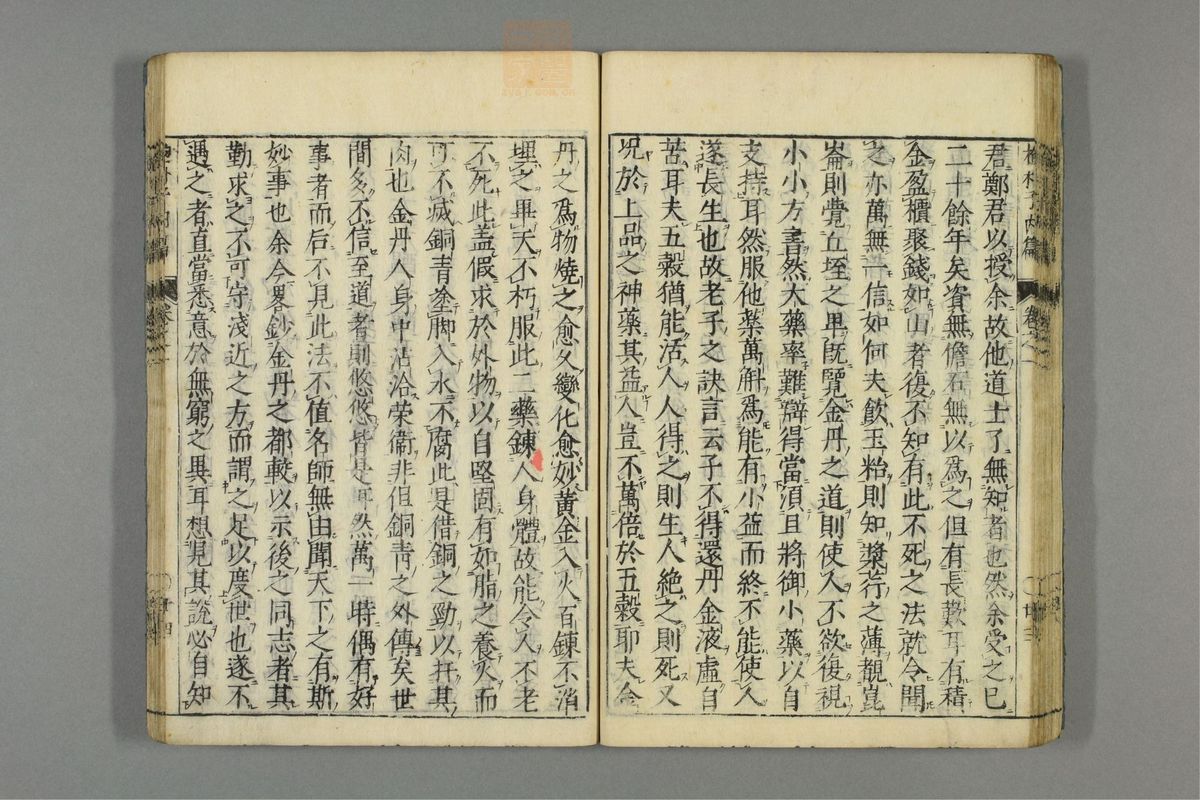 君鄭君以授余故他道士了無知者也然余受之已
二十餘年矣資無儋石無以爲之但有長歎耳有積
金盈櫃聚錢如山者復不知有此不死之法就令聞
之亦萬無一信如何夫飲玉粭則知漿荇之薄覩崑
崙則覺丘垤之卑既覽金丹之道則使人不欲復視
小小方書然大藥率難辯得當須且將御小藥以自
支持耳然服他藥萬斛爲能有小益而終不能使人
遂長生也故老子之訣言云子不得還丹金液虛自
苦耳夫五穀猶能活人人得之則生人絶之則死又
况於上品之神藥其益人豈不萬倍於五穀耶夫金
丹之爲物燒之愈久變化愈妙黃金入火百鍊不消
埋之畢天不朽服此二藥鍊人身體故能令人不老
不死此盖假求於外物以自堅固有如脂之養火而
可不滅銅青塗脚入水不腐此是借銅之勁以扞其
肉也金丹人身中沾洽荣衞非但銅青之外傅矣世
間多不信至道者則悠悠皆是耳然萬一時偶有好
事者而后不見此法不值名師無由聞天下之有斯
妙事也余今畧鈔金丹之都較以示後之同志者其
勤求之不可守淺近之方而謂之足以度世也遂不
遇之者直當悉意於無窮之異耳想見其說必自知